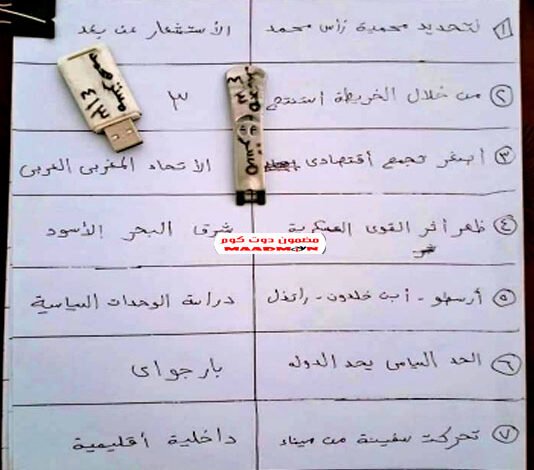 ① لتحديد محمية رأس محمد الأستشعار عن بعد
② من خلال الخريطة استنتج ٣
③ أصغر تجمع أقتصادى الأتحاد المغربى العربى
④ ظهر أثر القوى العسكرية شرق البحر الأسود
⑤ أرسطو - أبن خلدون - راتزل دراسة الوحدات السياسية
⑥ الحد السياسى يحد الدوله بارجواى
⑦ تحركت سفينة من ميناء داخلية أقليمية
مضمون دوت كوم